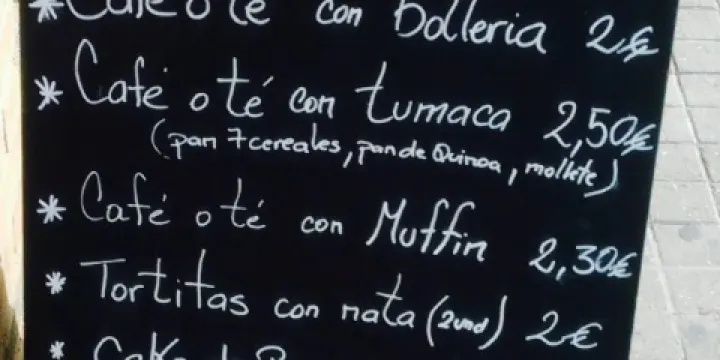 * Café o té con bolleria 2€
* Café o té con tumaca 2,50€
(pan 7 cereales, pan de Quinoa, mollete)
* Café o té con Muffin 2,30€
* Tortitas con nata (2und) 2€
*